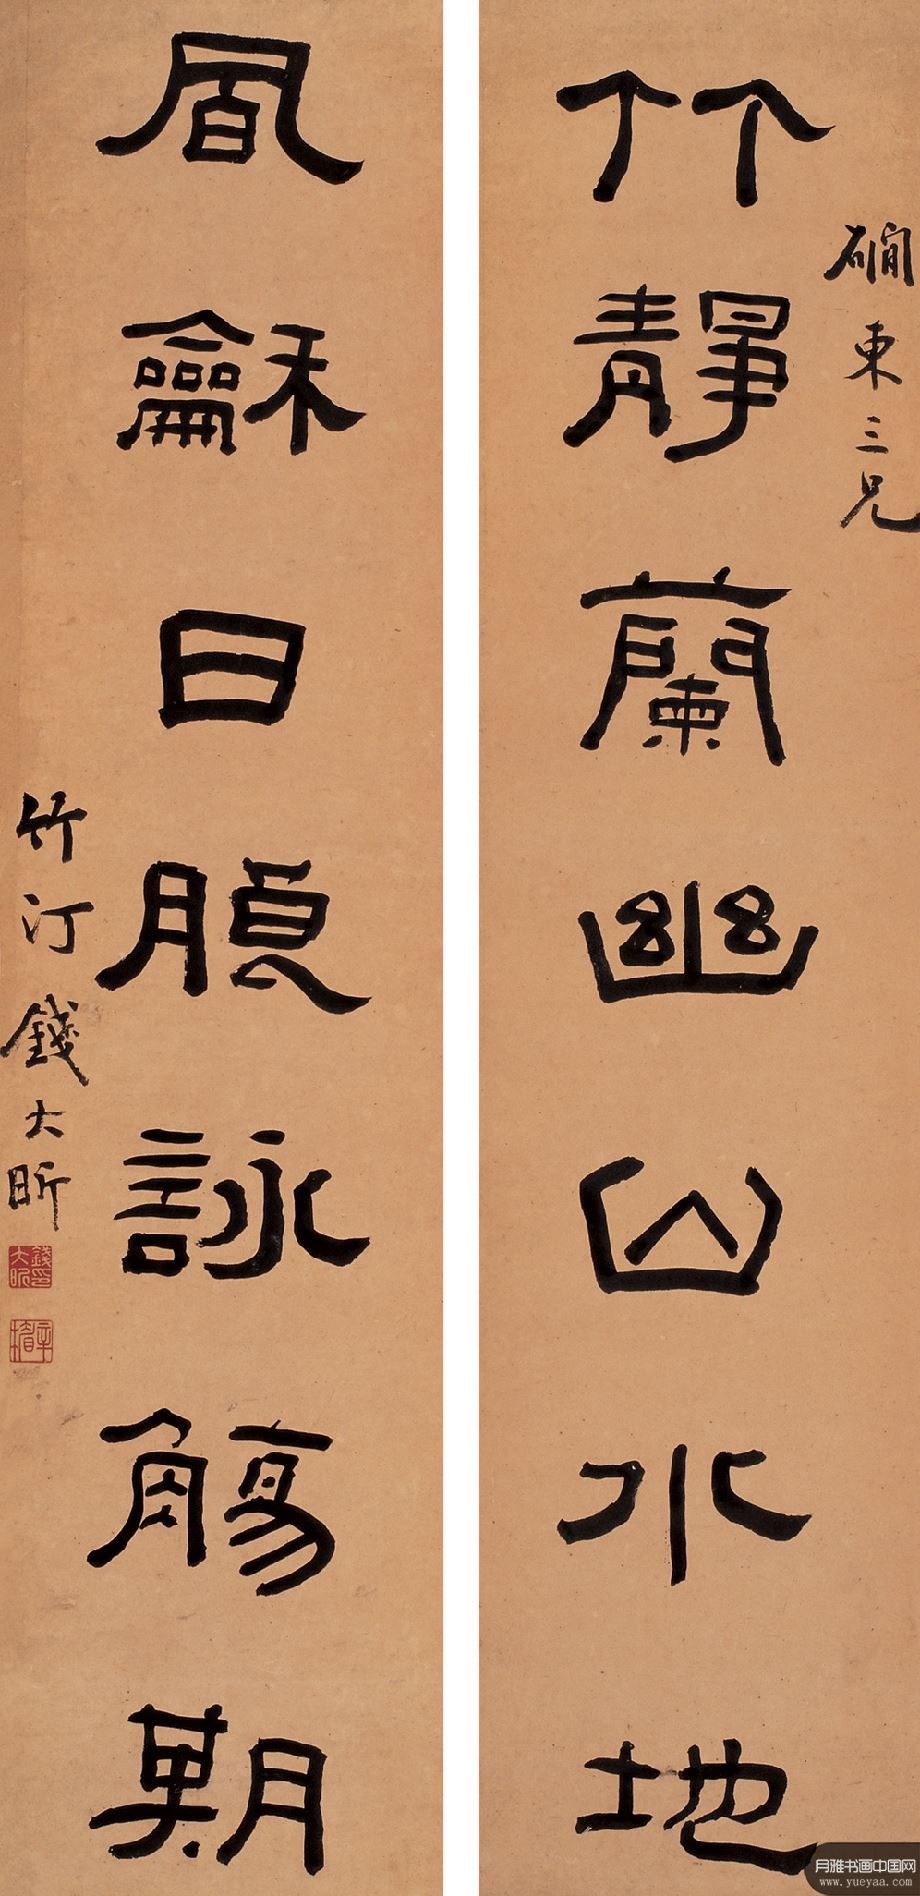 磵東三兄
竹靜蘭幽山水地
風龢日朖詠觴期
竹汀錢大昕
錢印大昕
辛楣
月雅书画中国网
www.yueyaa.com